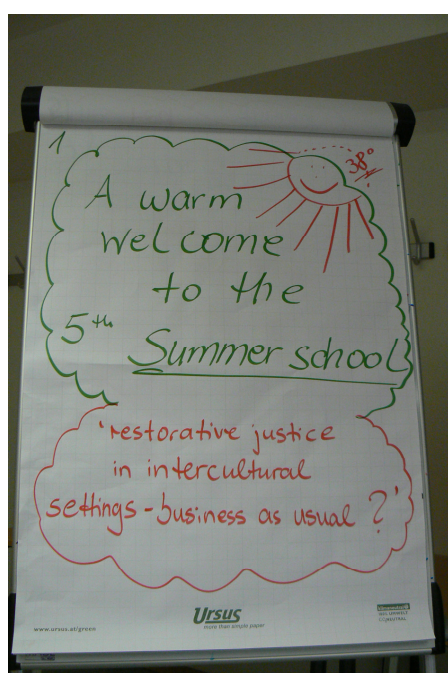 1
38°
A warm
welcome
to the
5th
Summer school
'restorative justice
in intercultural
settings - business as usual?'
www.ursus.at/green
Ursus
more than simple paper